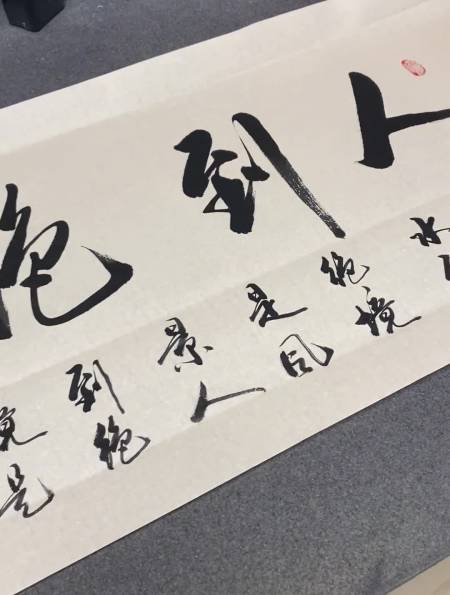 人到绝
水
绝境
是风
景人
到绝
境是